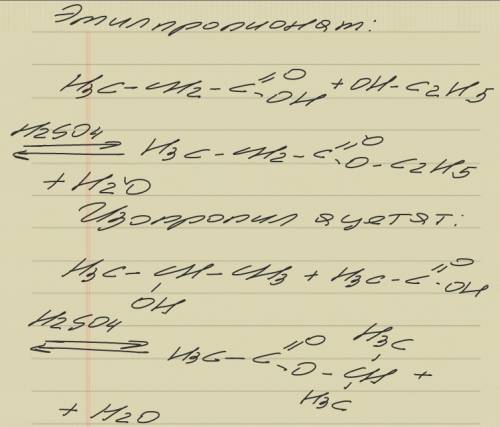 Этилпропионат:
H3C-CH2-C=O-OH + OH-C2H5
H2SO4 ⇌ H3C-CH2-C=O-O-C2H5
+ H2O
Изопропил ацетят:
H3C-CH-CH3 + H3C-C=O-OH
OH
H2SO4 ⇌ H3C-C=O-O-CH +
H3C
H3C
+ H2O